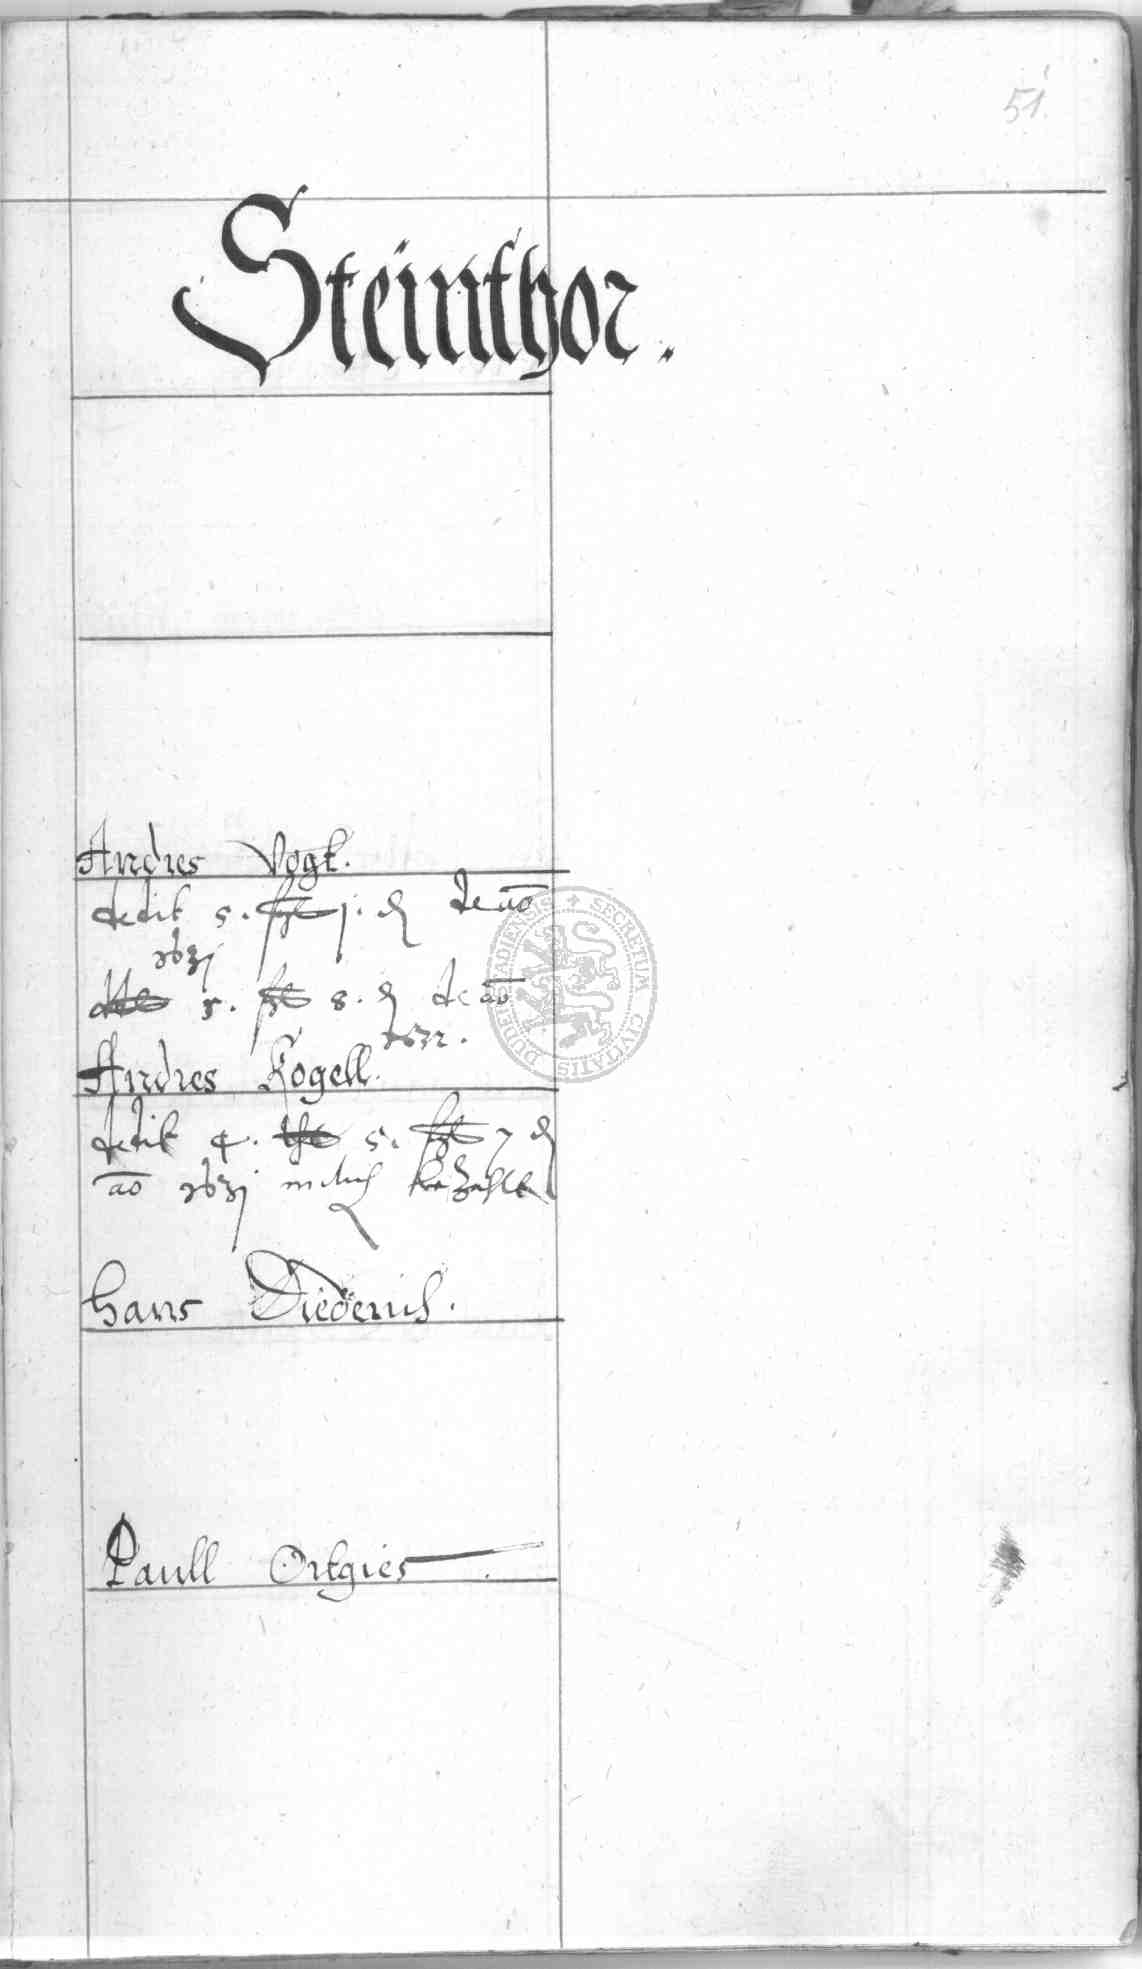 51
Steinthor.
Andres Vogt.
dedit 5. ßl j. d de ao
1631
5. ßl 8. d de ao
1632.
Andres Kogell.
dedit 4. 5. ßl 7 d
ao 1631 bezahlt
Hans Diederich.
Paull Ortgies
SECRETUM CIVITATIS DUDERSTADIENSIS